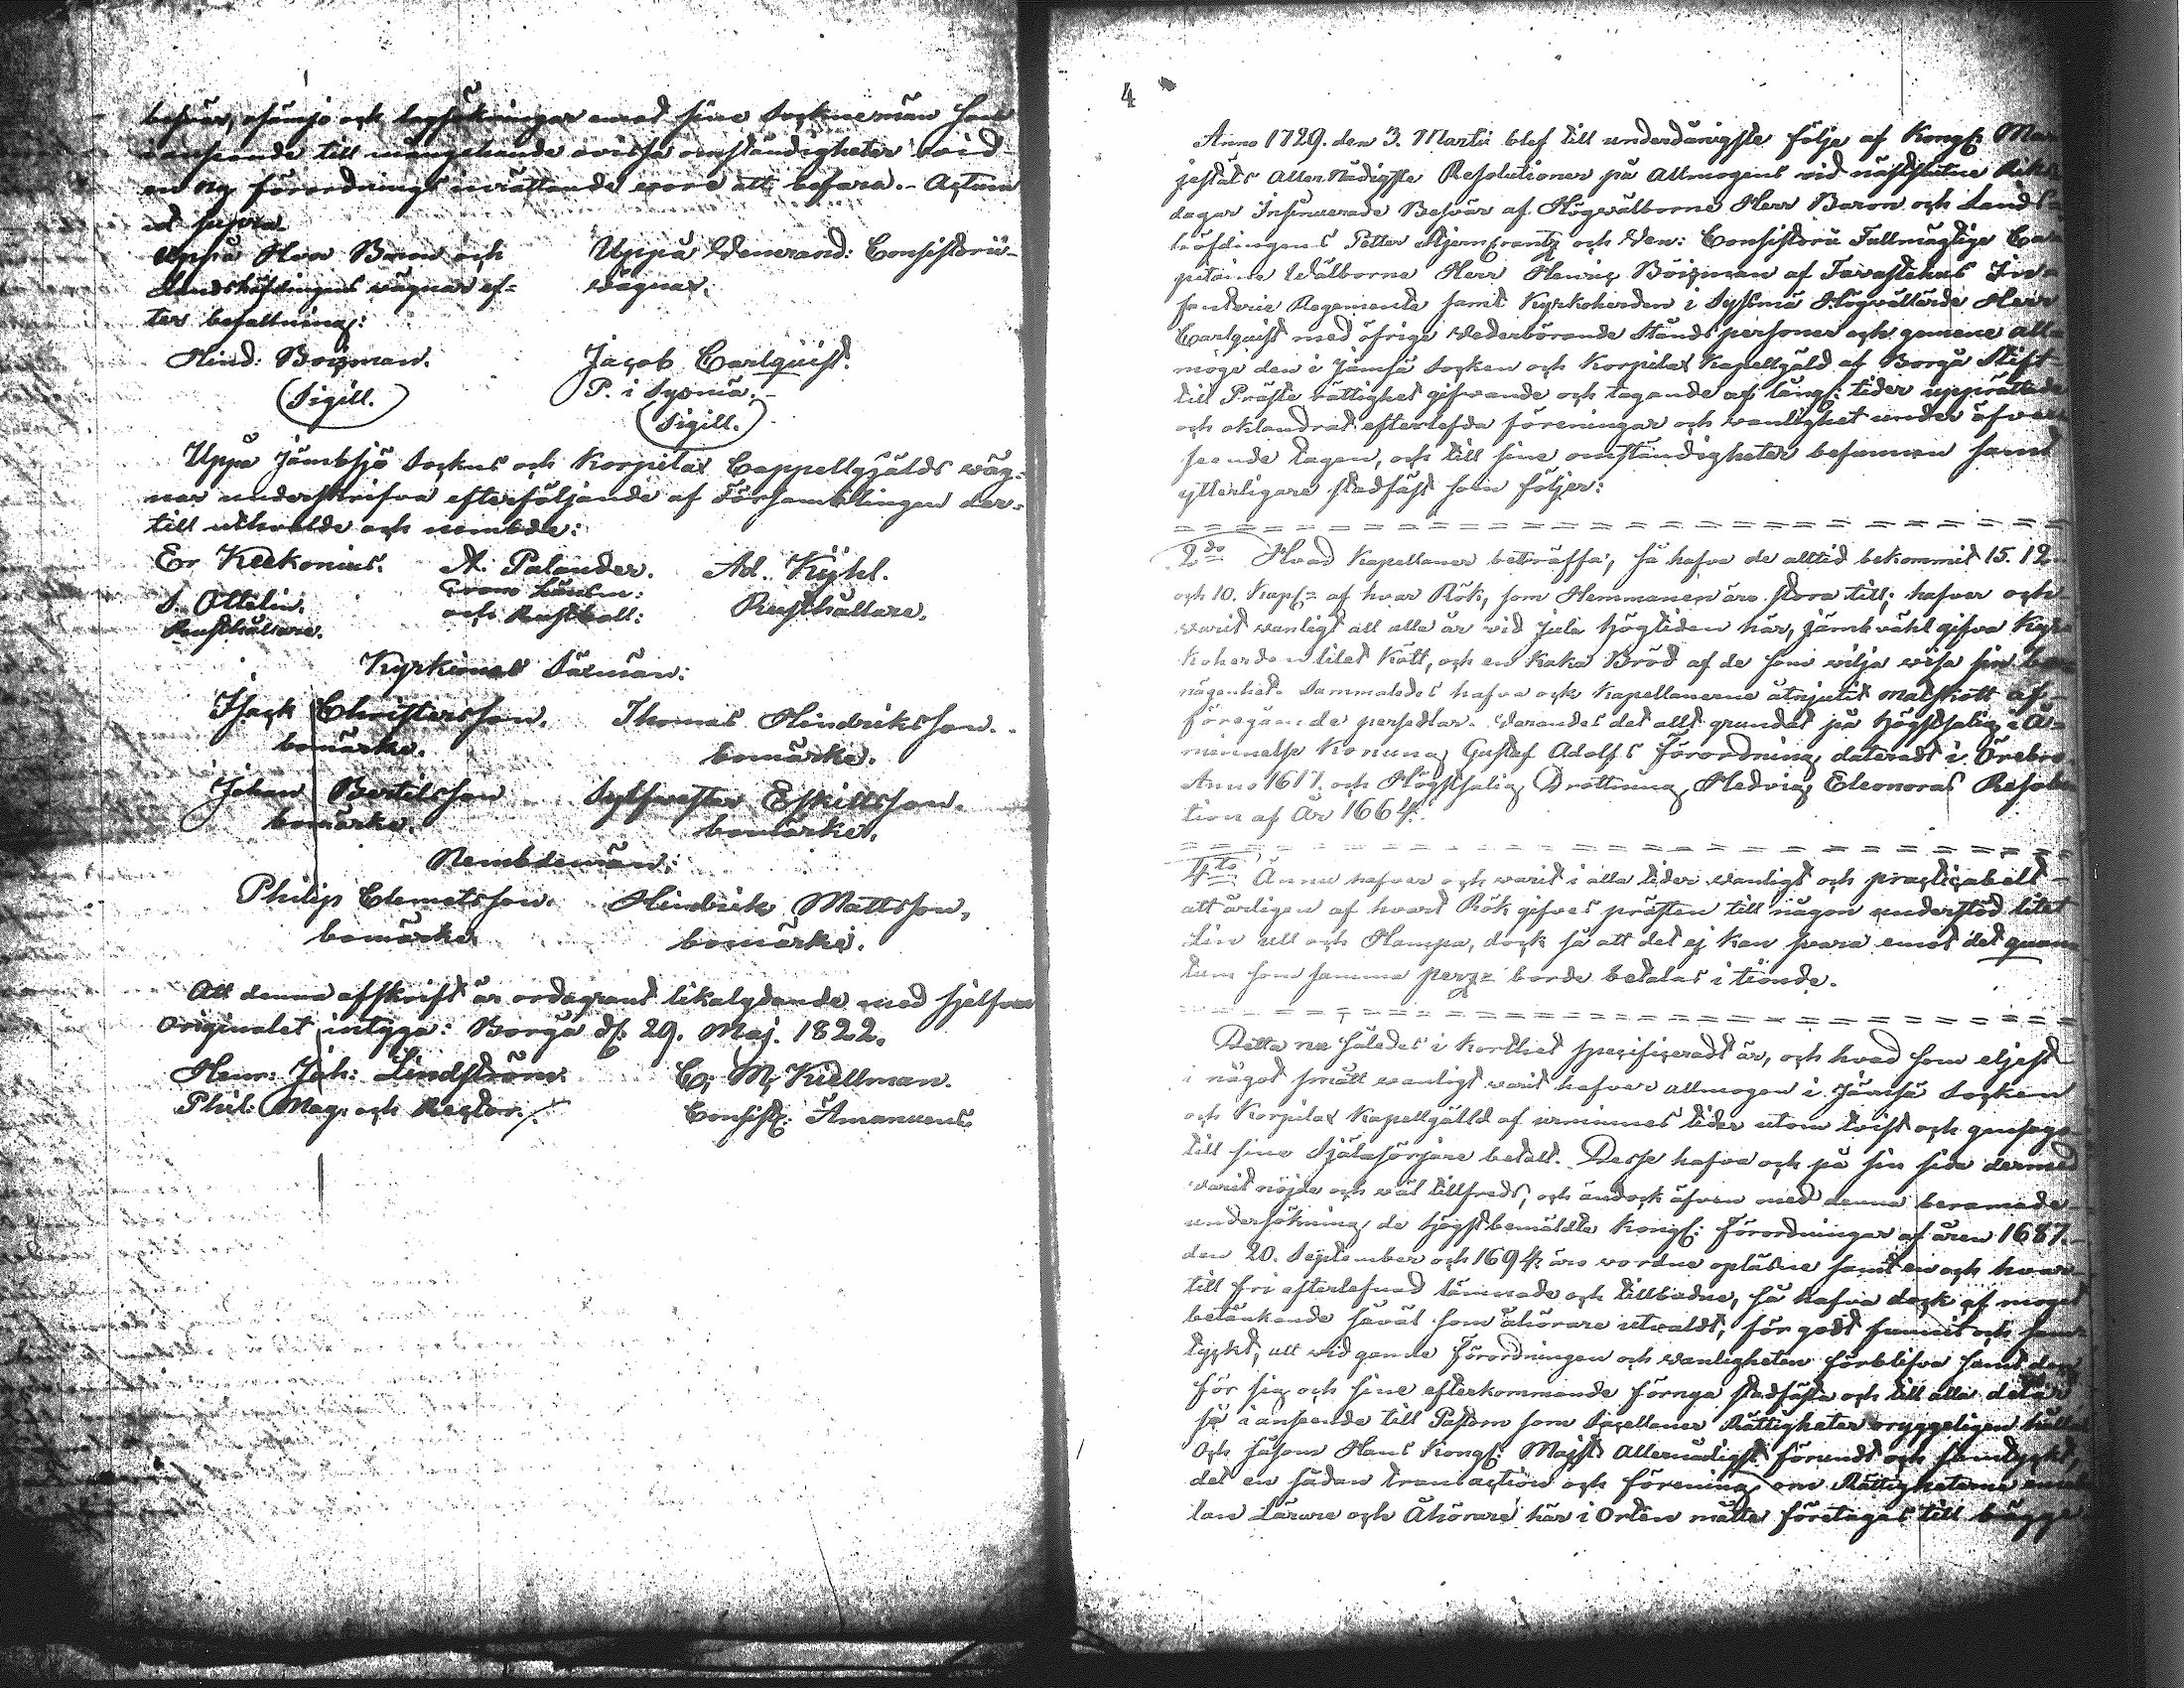 besvär, osämjo och lagsökningar emot sine Sochnemän som
i anseende till mångehande ovissa omständigheter vid
en ny förordnings inrättande vore att befara. - Actum
ut supra
Uppå Herr Baron och
Landshöfdingens vägnar ef-
ter befallning:
Hind: Boizman.
(Sigill.)
Uppå Venerand: Consistorii
vägnar.
Jacob Carlquist.
P. i Sysmä.
(Sigill.)
Uppå Jämbsjö Sockns och Korpilax Cappellgjälds väg-
nar underskrifva efterföljande af Församblingen der-
till utkorade och nembde:
Er Keckonius. A. Palander. Ad. Kÿhl.
Crono Länsm:
J. Ottelin. och Rusthåll: Rusthållare.
Rusthållare.
Kyrkiones Säxmän:
Isack Christersson. Thomas Hindriksson.
bomärke. bomärke.
Johan Bertilsson Sylfvester Eskillsson.
bomärke. bomärke.
Nembdemän:
Philip Clemetsson. Hindrich Mattsson,
bomärke bomärke.
Att denna afskrift är ordagrant likalydande med sjelfva
originalet intyga: Borgå d: 29. Maj. 1822.
Henr: Joh: Lindström. C. M. Kiellman.
Phil: Mag. och Rector. Consist: Amanuens.
4
Anno 1729. den 3. Martii blef till underdånigste följe af Kongl: Ma
jestäts Aller Nådigste Resolutioner på Allmogens vid nästslutne Riks
dagar Insinuerade Besvär af Högvälborne Herr Baron och Lands-
höfdingens Petter Stjerncrantz och Ven: Consistorii Fullmägtige Ca
pitaine Välborne Herr Henric Boizman af Tavastehus In-
fanterie Regemente samt Kyrkoherden i Sysmä Högvällärde Herr
Carlquist med öfrige vederbörande Ståndspersoner och gemene all-
moge den i Jämsä Socken och Korpilax Kapellgäld af Borgå Stift
till Präste rättighet gifvande och tagande af lång: tider upprättade
och oklandrat efterlefda föreningar och vanlighet under öfver
seende tagen, och till sine omständigheter befunnen samt
ytterligare stadfäst som följer:
2do Hvad Kapellaner beträffa, så hafva de alltid bekommit 15. 12
och 10. Kap: af hvar Rök, som Hemmanen äro stora till; hafver och
varit vanligt att alla år vid Jula högtiden här, jämbvähl gifva Kyr-
koherden litet Kött, och en Kaka Bröd af de som vilja visa sin be
nägenhet. Sammaledes hafva ock Kapellanerne åtnjutit matskott af
föregående persedlar. Varandes det allt grundat på högstsalig i Å-
minnelse Konung Gustaf Adolfs Förordning, daterat i Örebro
Anno 1617. och Högstsalig Drottning Hedvig Eleonoras Resolu
tion af År 1664.
4to Ännu hafver och varit i alla tider vanligt och practicabelt
att årligen af hvart Rök gifves prästen till någon understöd litet
Lin ull och Hampa, dock så att det ej kan svara emot det quan
tum som samma perz: borde betalas i tionde.
Detta nu således i korthet specificeradt är, och hvad som eljest
i något smått vanligt varit hafver allmogen i Jämsä Socken
och Korpilax Kapellgälld af urminnes tider utom tvist och gensago
till sine Själasörjare betalt. Desse hafva och på sin sida dermed
varit nöjde och väl tillfreds, och ändock äfven med denna beramade
undersökning, de högstbemäldte Kongl: Förordningar af åren 1687.
den 20. September och 1694 äro vordne oplästne samt en och hvar
till fri efterlefnad lämnade och tillbudne, så hafva dock af moget
betänkande såväl som åhörare utvaldt, för godt funnit och sam-
tyckt, att vid gamle Förordningen och vanligheten förblifva samt den
för sig och sine efterkommande förnya stadfästa och till alla delar
så i anseende till Pastorn som Sacellaner Rättigheter oryggeligen hålla
Och såsom Hans Kongl: Majst: Allernådigst förundt och samtyckt,
det en sådan transaction och förening, om Rättigheterne emel
lan Lärare och Åhörare här i Orten måtte företagas till bägge